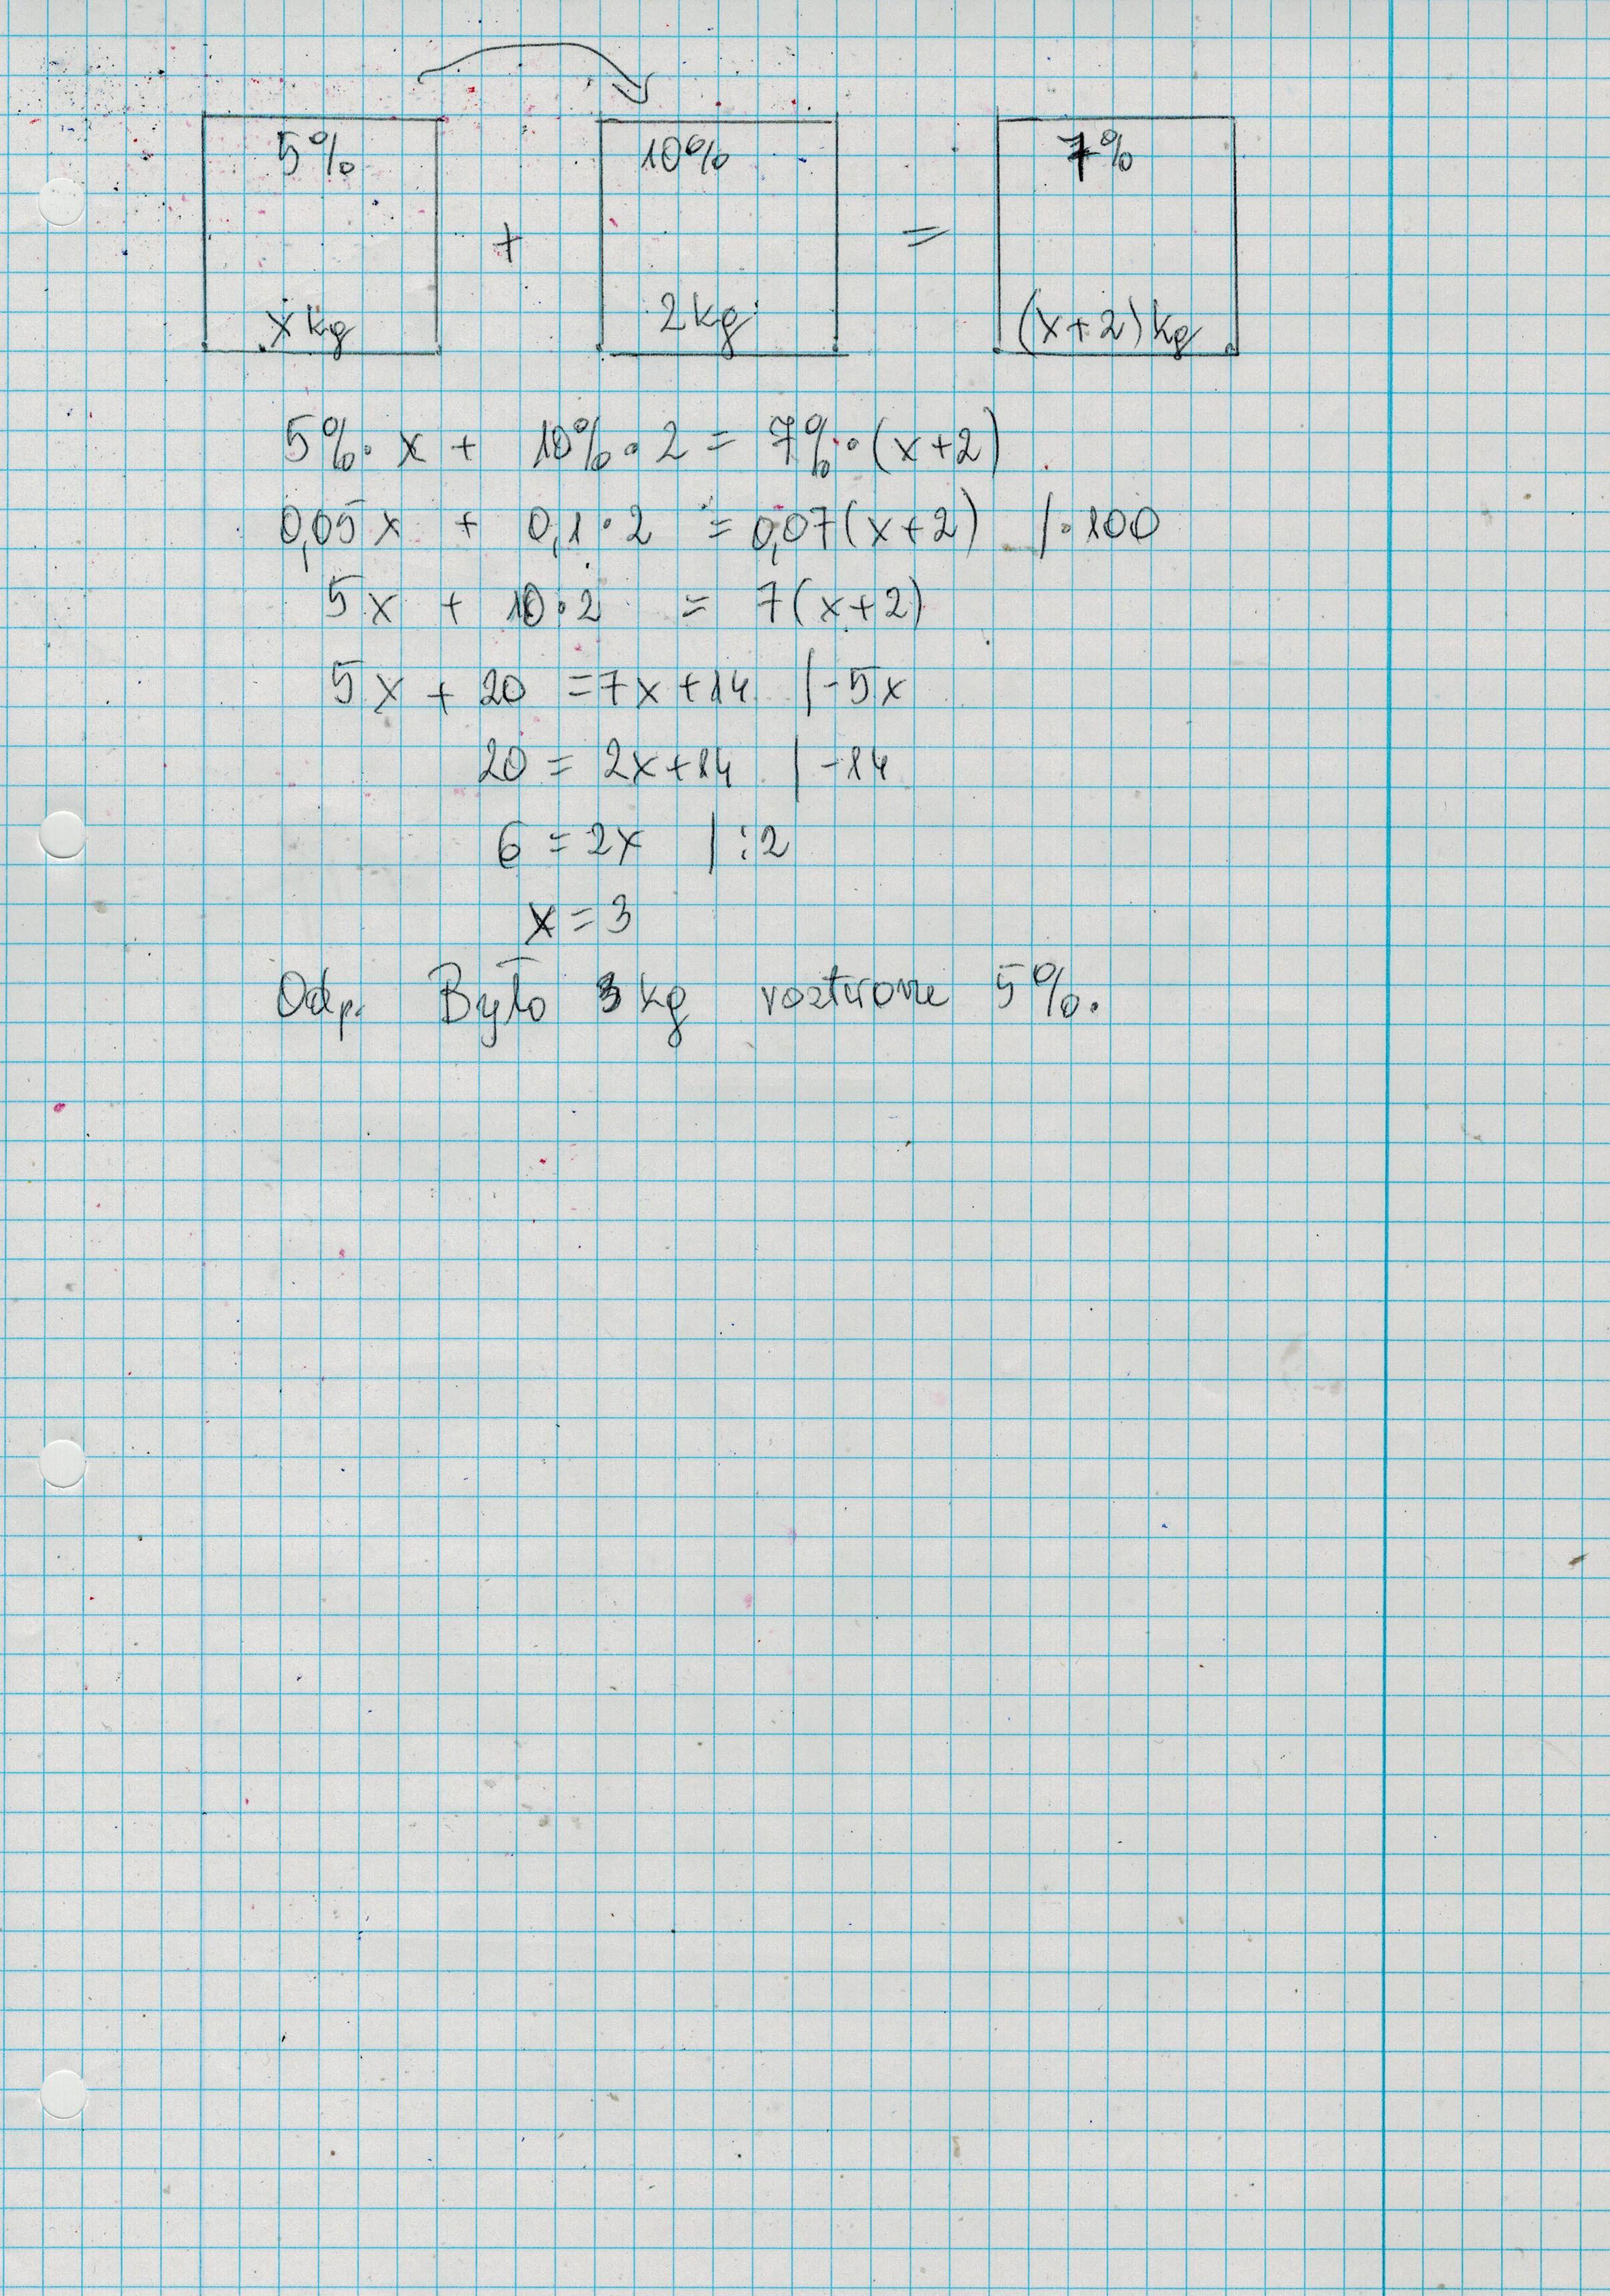 5% 10% 7%
+ =
x kg 2 kg (x+2) kg
5% · x + 10% · 2 = 7% · (x+2)
0,05x + 0,1 · 2 = 0,07(x+2) /·100
5x + 10·2 = 7(x+2)
5x + 20 = 7x+14 |-5x
20 = 2x+14 |-14
6 = 2x |:2
x = 3
Odp. Było 3 kg 5%.